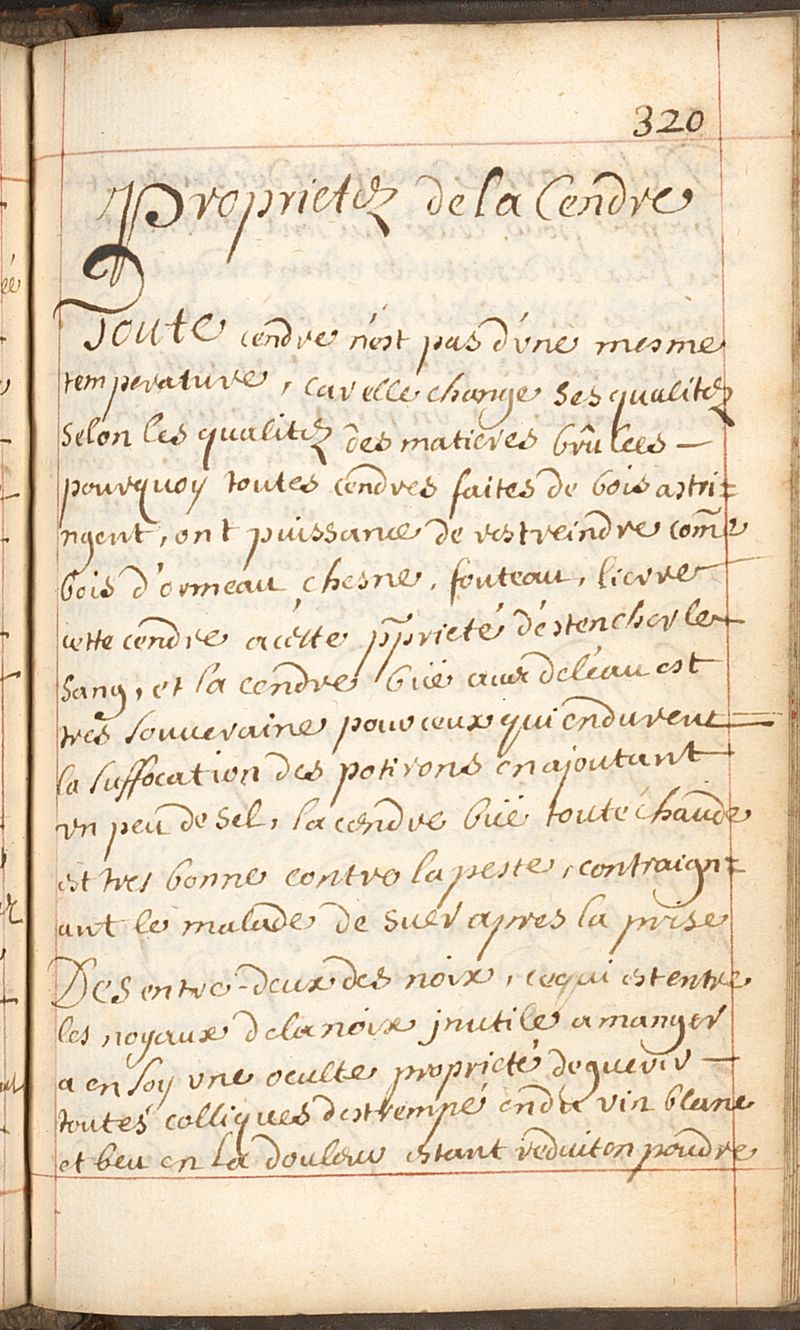 320
Proprietez de la Cendre
Toute cendre n'est pas d'vne mesme
temperature, car elle change ses qualitez
selon les qualitez des matieres brûlees —
pourquoy toutes cendres faites de bois astri=
ngent, ont puissance de restreindre com̃e
bois d'ormeau chesne, fouteau, lierre
cette cendre a cette pp̃rieté d'estencher le
sang, et la cendre buë avec de l'eau est
tres souueraine pour ceux qui endurent
la suffocation des potirons en ajoutant
vn peu de sel, la cendre buë toute chaude
est tres bonne contre la peste, contraign=
ant le malade de suer apres la prise
Des entre-deux des noix, ce qui est entre
les noyaux de la noix jnutile a manger
a en soy vne occulte proprieté de guerir —
toutes colliques destrempé en du vin blanc
et beu en la douleur estant reduit en poudre